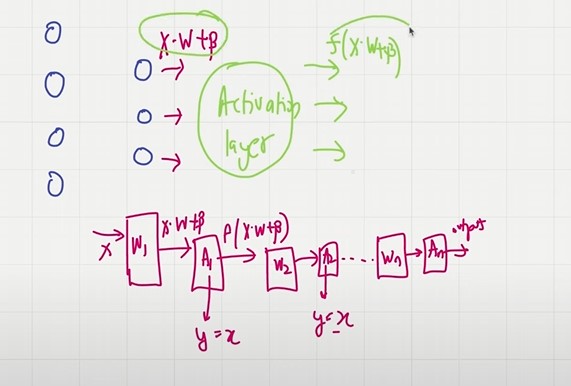 X·W+β
f(X·W+β)
Activation
layer
X
W₁
X·W+β
A₁
f(X·W+β)
W₂
A₂
....
Wn
An
output
y=x
y=x